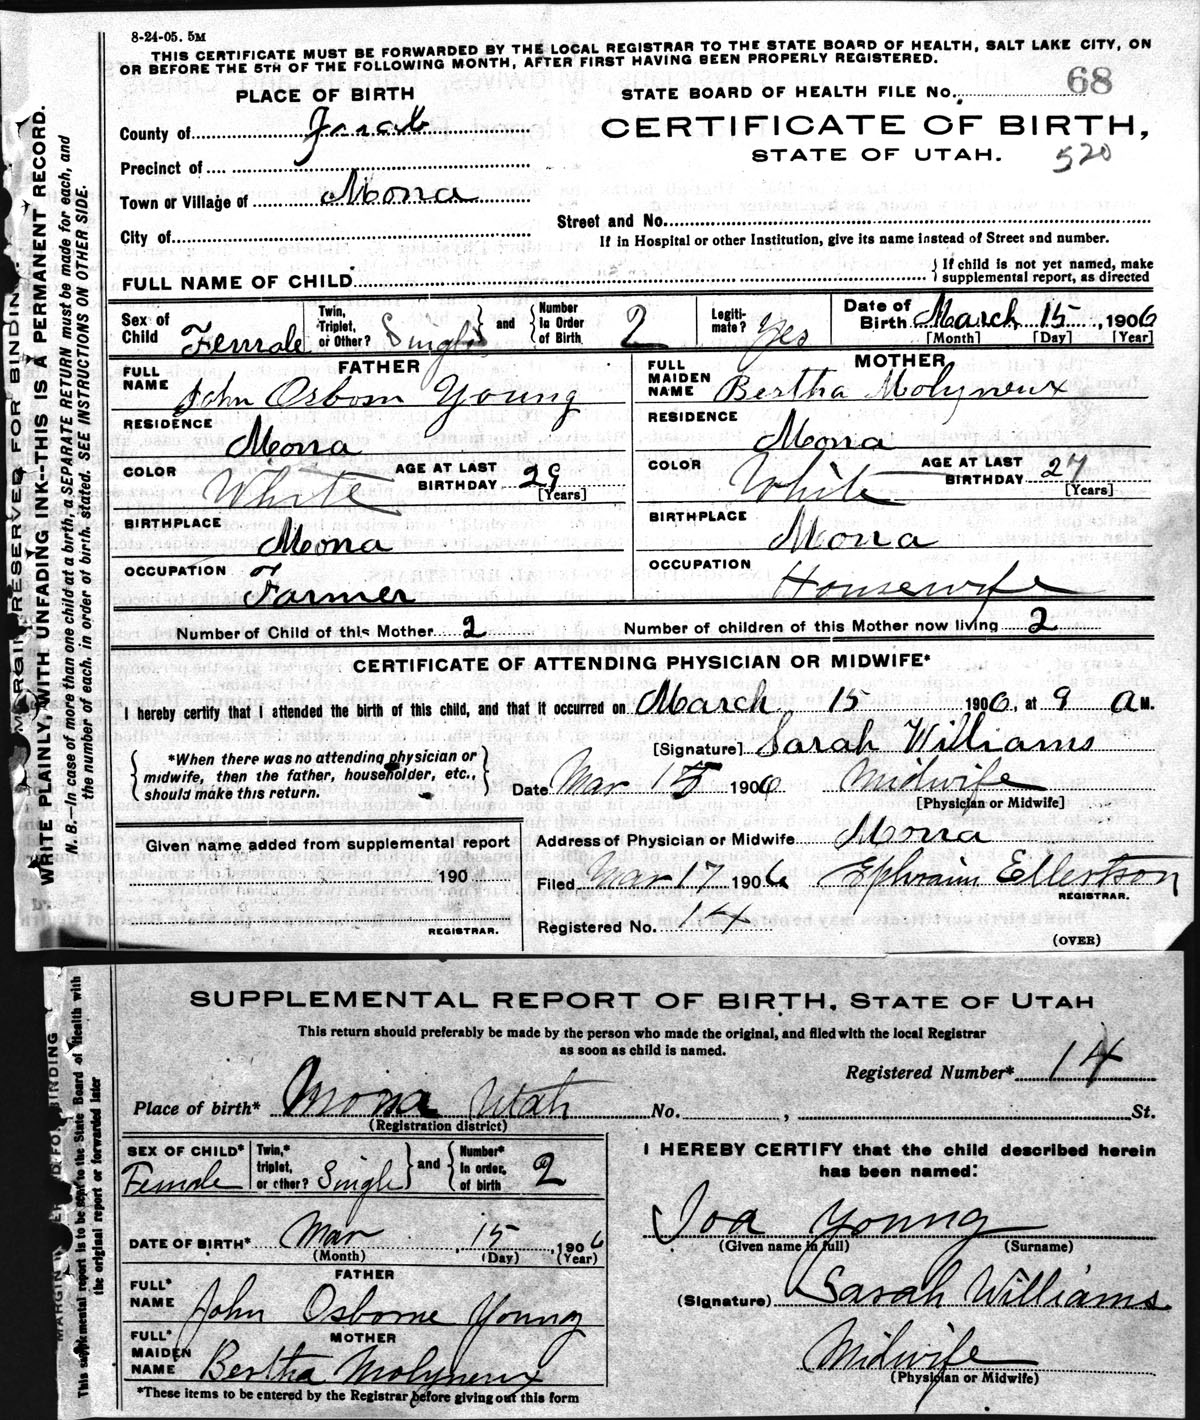 8-24-05. 5M
THIS CERTIFICATE MUST BE FORWARDED BY THE LOCAL REGISTRAR TO THE STATE BOARD OF HEALTH, SALT LAKE CITY, ON
OR BEFORE THE 5TH OF THE FOLLOWING MONTH, AFTER FIRST HAVING BEEN PROPERLY REGISTERED.
STATE BOARD OF HEALTH FILE No. 68
CERTIFICATE OF BIRTH,
STATE OF UTAH. 520
PLACE OF BIRTH
County of Juab
Precinct of
Town or Village of Mona
City of
Street and No.
If in Hospital or other Institution, give its name instead of Street and number.
FULL NAME OF CHILD
If child is not yet named, make
supplemental report, as directed
Sex of Child Female
Twin, Triplet, or Other? Single and Number In Order of Birth. 2
Legiti-mate? Yes
Date of Birth March 15, 1906
[Month] [Day] [Year]
FATHER
FULL NAME John Osborn Young
RESIDENCE Mona
COLOR White AGE AT LAST BIRTHDAY 29 [Years]
BIRTHPLACE Mona
OCCUPATION Farmer
MOTHER
FULL MAIDEN NAME Bertha Molyneux
RESIDENCE Mona
COLOR White AGE AT LAST BIRTHDAY 27 [Years]
BIRTHPLACE Mona
OCCUPATION Housewife
Number of Child of this Mother 2 Number of children of this Mother now living 2
CERTIFICATE OF ATTENDING PHYSICIAN OR MIDWIFE*
I hereby certify that I attended the birth of this child, and that it occurred on March 15 1906, at 9 a M.
*When there was no attending physician or
midwife, then the father, householder, etc.,
should make this return.
[Signature] Sarah Williams
Date Mar 15 1906 Midwife
[Physician or Midwife]
Given name added from supplemental report
190
REGISTRAR.
Address of Physician or Midwife Mona
Filed Mar 17 1906 Ephraim Ellertson
REGISTRAR.
Registered No. 14
(OVER)
MARGIN RESERVED FOR BINDING.
WRITE PLAINLY, WITH UNFADING INK--THIS IS A PERMANENT RECORD.
N. B.—In case of more than one child at a birth, a SEPARATE RETURN must be made for each, and
the number of each, in order of birth, stated. SEE INSTRUCTIONS ON OTHER SIDE.
SUPPLEMENTAL REPORT OF BIRTH, STATE OF UTAH
This return should preferably be made by the person who made the original, and filed with the local Registrar
as soon as child is named.
Registered Number* 14
Place of birth* Mona Utah No. , St.
(Registration district)
SEX OF CHILD* Female
Twin,* triplet, or other? Single and Number* In order, of birth 2
DATE OF BIRTH* Mar 15, 1906
(Month) (Day) (Year)
FATHER
FULL* NAME John Osborne Young
MOTHER
FULL* MAIDEN NAME Bertha Molyneux
*These items to be entered by the Registrar before giving out this form
I HEREBY CERTIFY that the child described herein
has been named:
Ioa Young
(Given name in full) (Surname)
(Signature) Sarah Williams
Midwife
(Physician or Midwife)
This supplemental report is to be sent to the State Board of Health with
the original report or forwarded later